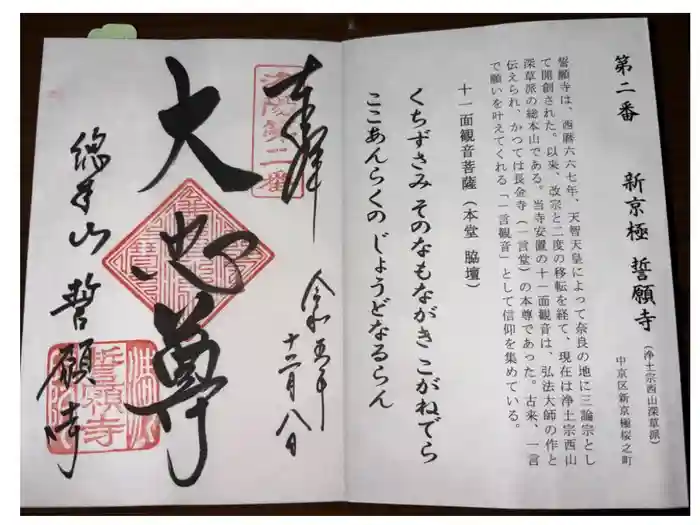 第二番　新京極 誓願寺
（浄土宗西山深草派）
中京区新京極桜之町
誓願寺は、西暦六六七年、天智天皇によって奈良の地に三論宗とし
て開創された。以来、改宗と二度の移転を経て、現在は浄土宗西山
深草派の総本山である。当寺安置の十一面観音は、弘法大師の作と
伝えられ、かつては長金寺（一言堂）の本尊であった。古来、一言
で願いを叶えてくれる「一言観音」として信仰を集めている。
十一面観音菩薩（本堂 脇壇）
くちずさみ そのなもながき こがねでら
ここあんらくの じょうどなるらん
奉拝
洛陽第二番
令和五年
十二月八日
大悲尊
総本山 誓願寺
誓願寺